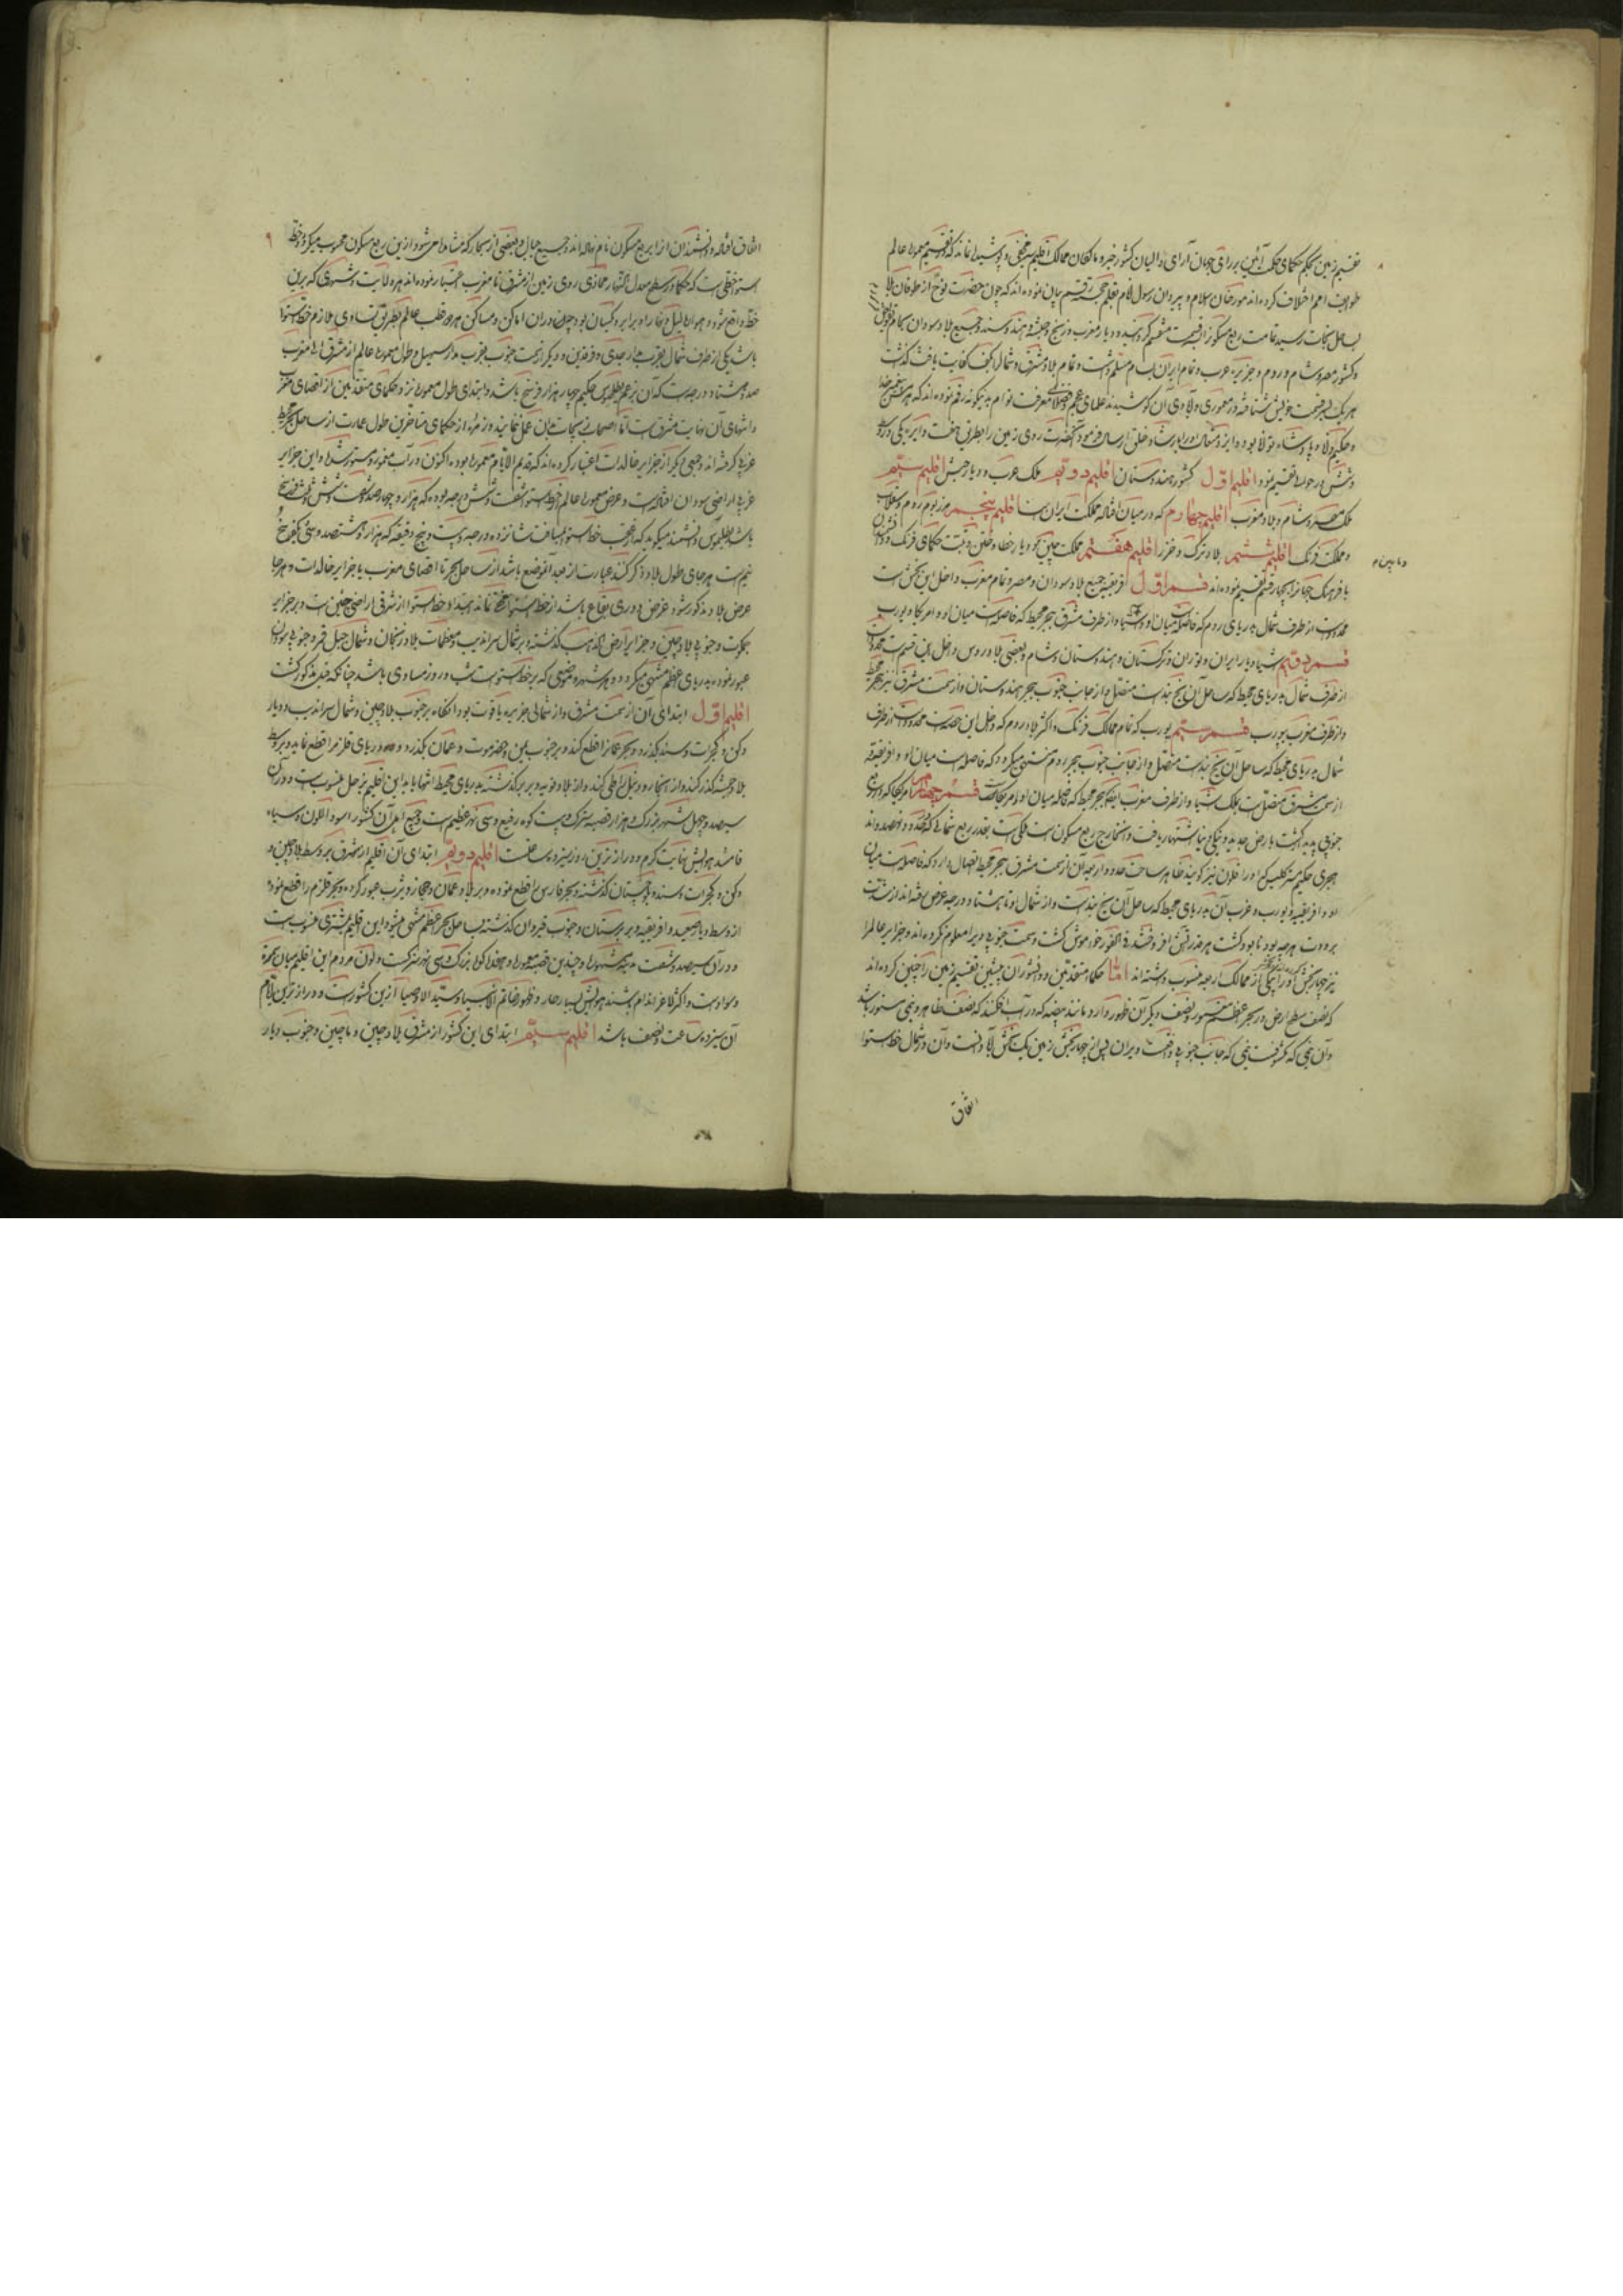 تقسیم زمین بحکم حکمای حکمت آئین بر رای جهان آرای والیان کشور خبر و مالکان ممالک اقلیم مخفی و پوشیده نماند که در تقسیم معموره عالم
طوایف امم اختلاف کرده‌اند مورخان اسلام و پیروان رسول انام بقلم رقم بیان نموده‌اند که چون حضرت نوح از طوفان بلا
بساحل نجات رسید تمامت ربع مسکون را قسمت کردانیده دیار مغرب و زنج و حبشه و هند و سند و جمیع بلاد سودان بحام
و کشور مصر و شام و روم و جزیره عرب و تمام ایران بسام مسلم داشت و تمام بلاد مشرق و شمال کفایت یافث گذشت
هر یک بر قسمت خویش شتافته در معموری و آبادی آن کوشیدند علمای عجم و فضلای معرفت توام بدینگونه رقم نموده‌اند که
و حکیم و پادشاه بود روی زمین را بطریق هفت دایره یکی در وسط
و شش در حوالی تقسیم نمود اقلیم اول کشور هندوستان اقلیم دویم ملک عرب و دیار حبش اقلیم سیم
ملک مصر و شام و بلاد مغرب اقلیم چهارم که در میان افتاده مملکت ایران است اقلیم پنجم مرز بوم روم و سقلاب
و مملکت فرنک اقلیم ششم بلاد ترک و خزر اقلیم هفتم مملکت چین و دیار خطا و ختن و تبت حکمای فرنک
و ماچین
با فرهنک جهان را بچهار قسم تقسیم نموده‌اند قسم اول افریقیه جمیع بلاد سودان و مصر و تمام مغرب داخل این بخش است
محدود است از طرف شمال بدریای روم که فاصله است میان او و از طرف مشرق ببحر محیط که فاصله است میان او و امریکا و یورپ
قسم دویم آسیا دیار ایران و توران و ترکستان و هندوستان و شام و بعضی بلاد روس داخل این قسم است محدود است
از طرف شمال بدریای محیط که ساحل آن یخ بند است متصل و از جانب جنوب ببحر هندوستان و از سمت مشرق نیز ببحر محیط
و از طرف مغرب بیورپ قسم سیم یورپ که تمام ممالک فرنک و اکثر بلاد روم که داخل این حصه است محدود است از طرف
شمال بدریای محیط که ساحل آن یخ بند است متصل و از جانب جنوب ببحر روم منتهی میگردد که فاصله است میان او و افریقیه
از سمت مشرق متصل است بملک آسیا و از طرف مغرب ایضا ببحر محیط که فاصله میان او و امریکا است قسم چهارم امریکا که
جنوبی پدید گشت بارض جدید و ینکی دنیا اشتهار یافت و خارج ربع مسکون است ملکی است بقدر ربع شمالی که در حدود و نهصد و اند
هجری حکیم مستر کلمبس که او را فلون نیز گویند ظاهر ساخت حدود اربعه آن از سمت مشرق ببحر محیط اتصال دارد که فاصله است میان
او و افریقیه و یورپ و غرب آن بدریای محیط که ساحل آن یخ بند است و از شمال او تا هشتاد درجه عرض رفته‌اند از شدت
برودت هر چه بود نابود کشت هر قدر آتش افروختند فی الفور خاموش کشت و سمت جنوبی او را معلوم نکرده‌اند و جزایر عالم را
نیز چهار بخش کردانیده هر یکی از ممالک اربعه منسوب داشته‌اند اما حکماء متقدمین و دانشوران پیشین تقسیم زمین را چنین کرده‌اند
که نصف سطح ارض در بحر اعظم مستور و نصف دیگر آن ظهور دارد مانند بیضه که در آب افکنند که نصف ظاهر و نیمی مستور باشد
و آن نیمی که مکشوفست نیمی که جانب جنوبی واقعست ویران پس از چهار بخش زمین یک بخش آبادانست و آن در شمال خط استوا
اتفاق
۹
اتفاق افتاده و دانشمندان آنرا ربع مسکون نام نهاده‌اند و جمیع جبال و بعضی از بحار که مشاهده می‌شود ازین ربع مسکون محسوب میگردد و خط
استوا خطی است که حکما در سطح معدل النهار محاذی روی زمین از مشرق تا مغرب اعتبار نموده‌اند هر ولایت و شهری که برین
خط واقع شود در هوا لیل و نهار او برابر و یکسان بود چنان در آن اماکن و مساکن هر دو قطب عالم بطریق تساوی ملازم خط استوا
باشد یکی از طرف شمال بقرب مدار جدی و فرقدین و دیگر از سمت جنوب بقرب مدار سهیل و طول معموره عالم از مشرق الی مغرب
صد و هشتاد درجه است که آن بزعم بطلمیوس حکیم چهار هزار فرسخ باشد و ابتدای طول معموره نزد حکمای متقدمین از اقصای مغرب
و انتهای آن نهایت مشرق است و نزد طایفه از حکمای متأخرین طول عمارت از ساحل بحر محیط
غربی گرفته‌اند و جمعی دیگر از جزایر خالدات اعتبار کرده‌اند که قدیم الایام معموره بوده اکنون در آب مغمور و مستور شده و این جزایر
غربی اراضی سودان افتاده است و عرض معموره عالم از خط استوا شصت و شش درجه بوده که هزار و چهار صد و شصت و شش فرسخ
باشد بطلمیوس دانشمند میگوید که از عقب خط استوا بمسافت شانزده درجه و بیست و پنج دقیقه که هزار و هشتصد و سی و یک فرسخ و
نیم است هر جای طول بلاد ذکر کنند عبارت از بعد آنموضع باشد از ساحل بحر تا اقصای مغرب یا جزایر خالدات و هر جا
عرض بلاد مذکور شود غرض دوری بقاع باشد از خط استوا مخفی نماند مبداء خط استوا از شرقی اراضی چین است و بر جزایر
جمکوت و جنوبی بلاد چین و جزایر ارض الذهب گذشته و بر شمال سراندیب و معظمات بلاد زنجان و شمال جبل قمر و جنوبی سودان
عبور نموده بدریای اعظم منتهی میگردد و هر شهر و موضعی که بر خط استواست شب و روز مساوی باشد چنانکه قبل مذکور گشت
اقلیم اول ابتدای آن از سمت مشرق و از شمالی جزیره یاقوت بود آنگاه بر جنوب بلاد چین و شمال سراندیب و دیار
دکن و گجرات و سند گذرد و بحر عمان را قطع کند و بر جنوب یمن و حضرموت و عمان بگذرد و دریای قلزم را قطع نماید و بر وسط
بلاد حبشه گذر کند و از آنجا رود نیل را طی کند و از بلاد نوبه و بربر گذشته بدریای محیط انتها یابد این اقلیم بزحل منسوب است و در آن
سیصد و چهل شهر بزرگ و هزار قصبه سترک و بیست کوه رفیع و سی نهر عظیم است و جمیع اهل آن کشور اسود اللون و سیاه
فام‌اند هوایش نهایت گرم و درازترین روز سیزده ساعت است اقلیم دویم ابتدای آن اقلیم از مشرق بر وسط بلاد چین و
دکن و گجرات و سند و بلوچستان گذشته و بحر فارس را قطع نموده و بر بلاد عمان و حجاز و یثرب عبور کرده و بحر قلزم را قطع نموده
از وسط دیار صعید و افریقیه و بربرستان و جنوب قیروان گذشته بساحل بحر اعظم منتهی میشود این اقلیم بمشتری منسوب است
و در آن سیصد و شصت مدینه مشهوره و چندین قصبه معموره و هفده کوه بزرگ و سی نهر سترکست و لون مردم این اقلیم میان سمرة
و سواد است و اکثر لاغر اندام باشند هوایش بسیار حار و ظهور خاتم الانبیاء و سید الاوصیا ازین کشور است و درازترین ایام
آن سیزده ساعت و نصف باشد اقلیم سیم ابتدای این کشور از مشرق بلاد چین و ماچین و جنوب دیار